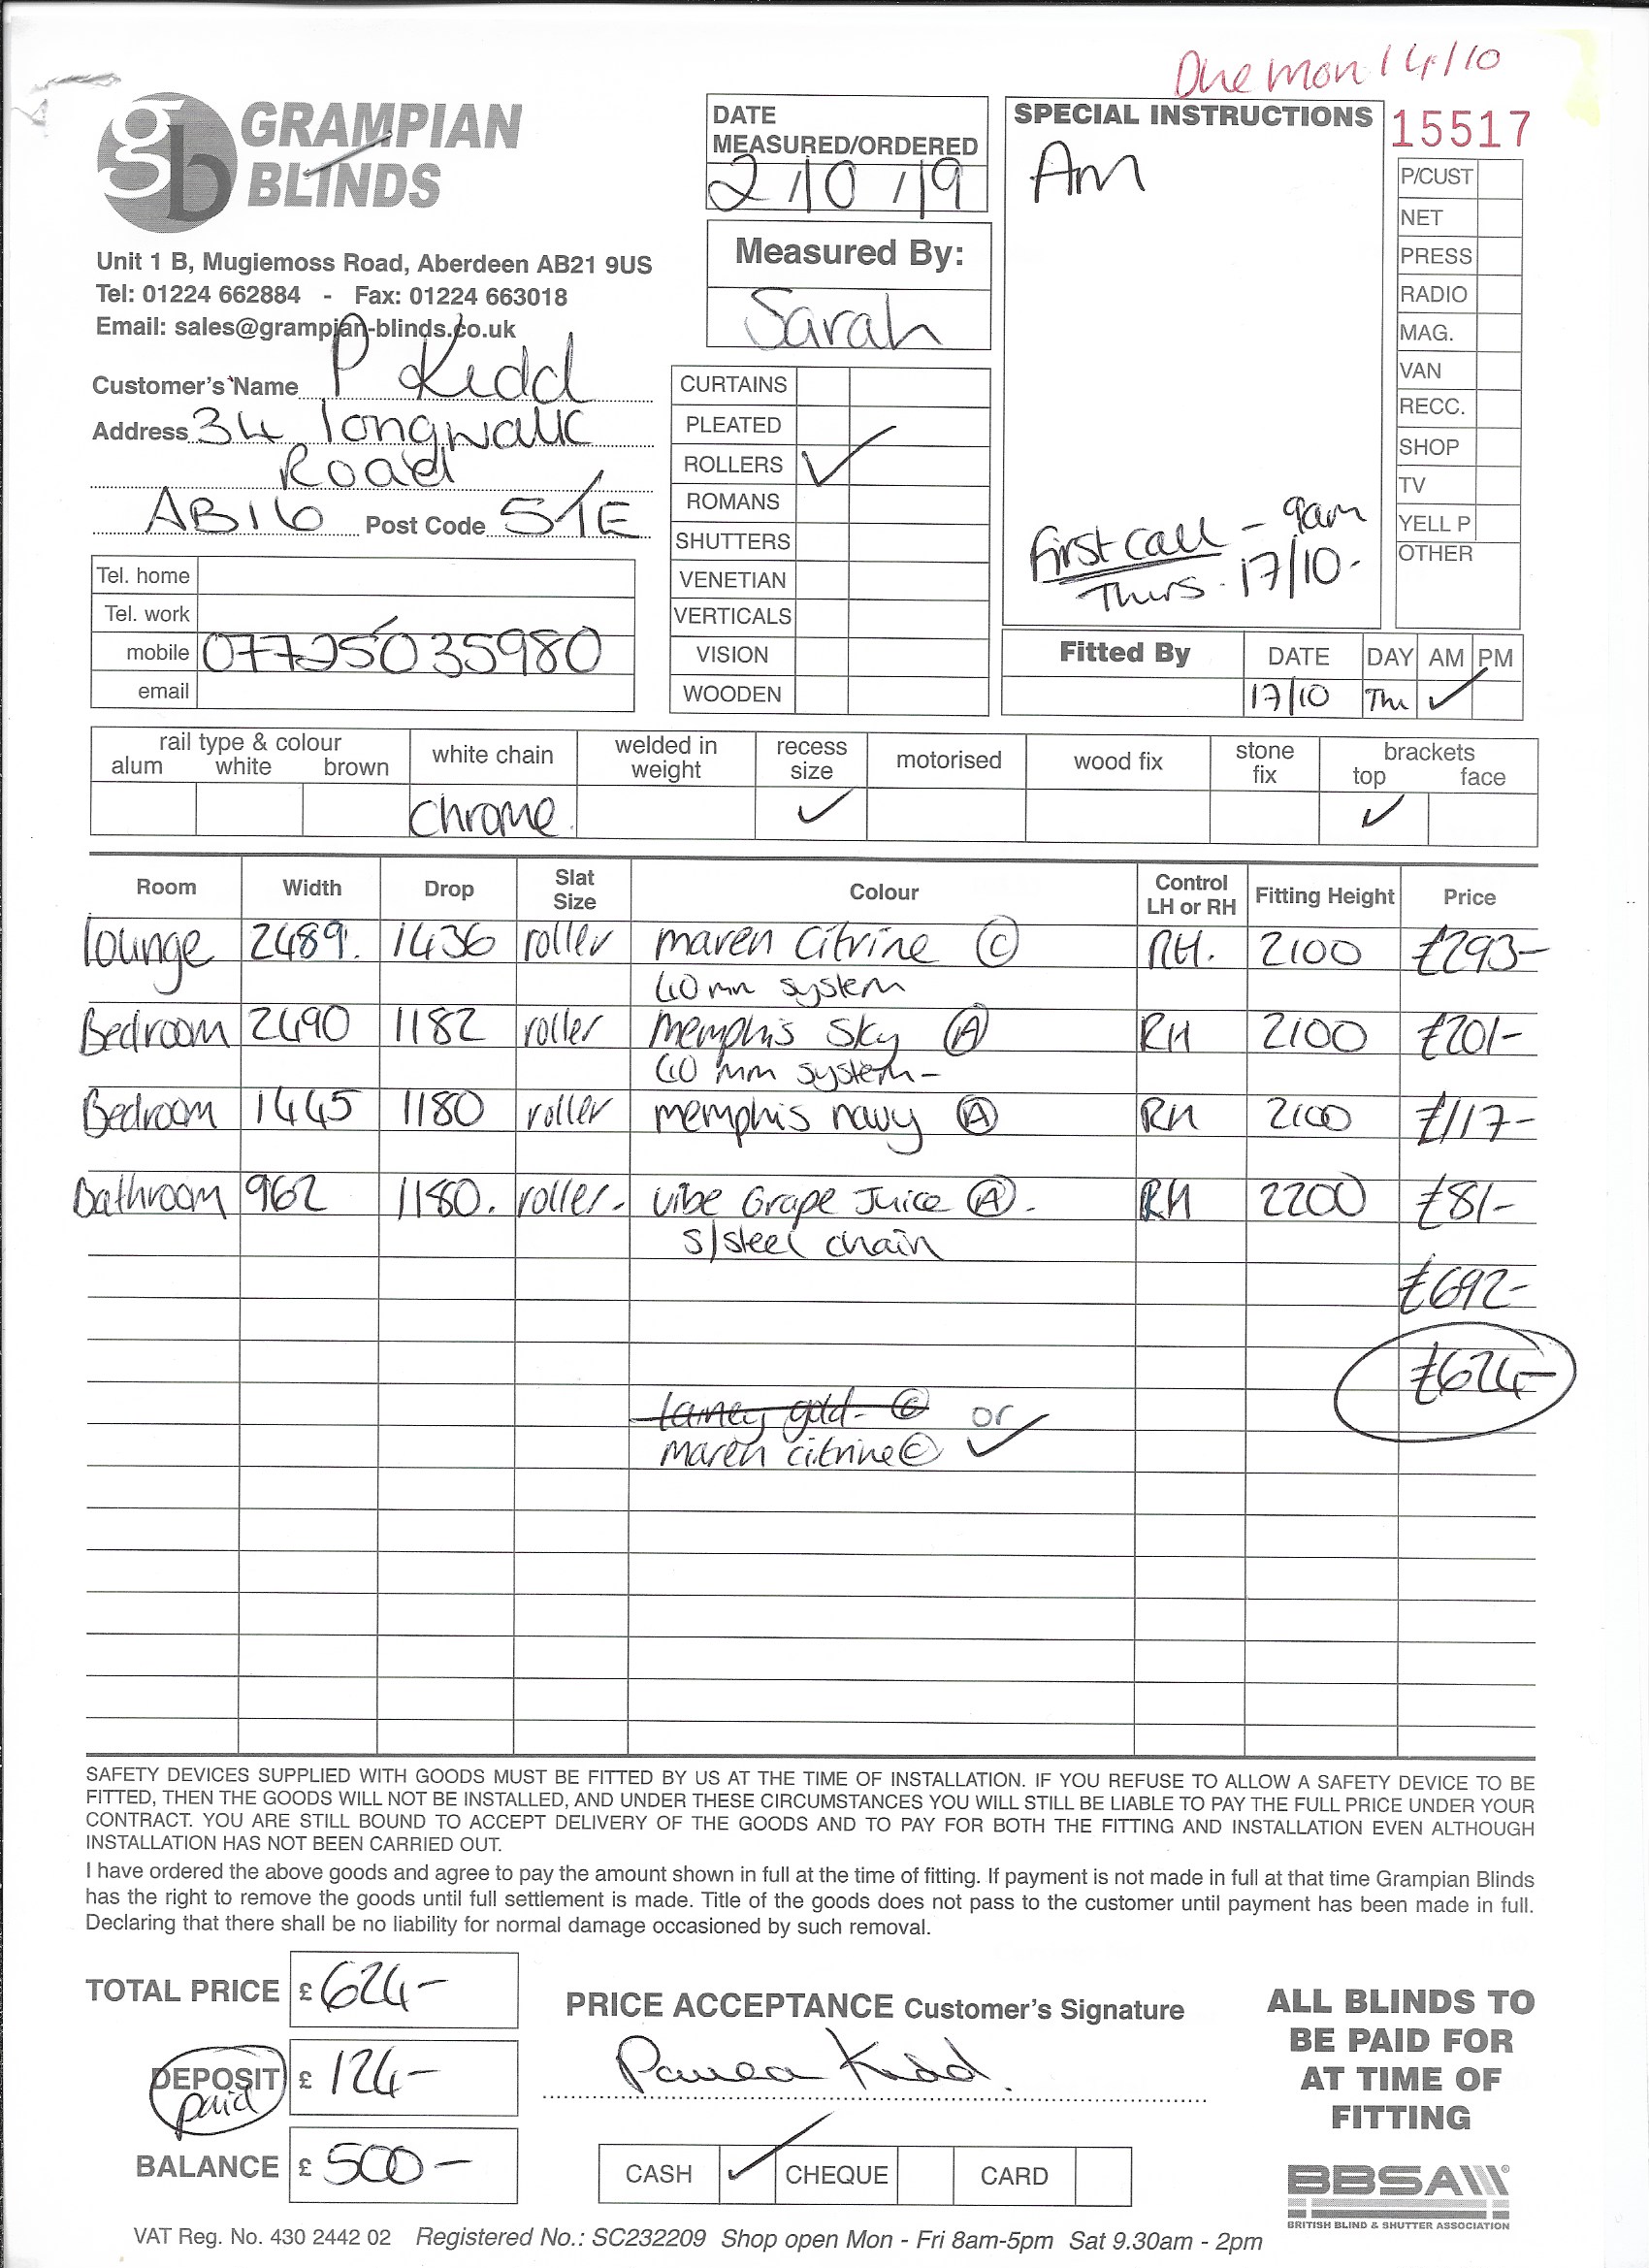 Due mon 14/10
gb GRAMPIAN
BLINDS
Unit 1 B, Mugiemoss Road, Aberdeen AB21 9US
Tel: 01224 662884 - Fax: 01224 663018
Email: sales@grampian-blinds.co.uk
Customer's Name P Kidd
Address 34 longwalk
Road
AB16 Post Code 5TE
Tel. home
Tel. work
mobile 07725035980
email
DATE
MEASURED/ORDERED
2/10/19
Measured By:
Sarah
CURTAINS
PLEATED
ROLLERS ✓
ROMANS
SHUTTERS
VENETIAN
VERTICALS
VISION
WOODEN
SPECIAL INSTRUCTIONS
Am
First call - 9am
Thurs. 17/10.
15517
P/CUST
NET
PRESS
RADIO
MAG.
VAN
RECC.
SHOP
TV
YELL P
OTHER
Fitted By DATE DAY AM PM
17/10 Thu ✓
rail type & colour white chain welded in recess motorised wood fix stone brackets
alum white brown weight size fix top face
chrome ✓ ✓
Room Width Drop Slat Size Colour Control LH or RH Fitting Height Price
lounge 2489. 1436 roller maren citrine (C) RH. 2100 £293-
40mm system
Bedroom 2490 1182 roller memphis Sky (A) RH 2100 £201-
40 mm system-
Bedroom 1445 1180 roller memphis navy (A) RH 2100 £117-
Bathroom 962 1180. roller- vibe Grape Juice (A). RH 2200 £81-
s/steel chain
£692-
£624-
gold- (C) or
maren citrine (C) ✓
SAFETY DEVICES SUPPLIED WITH GOODS MUST BE FITTED BY US AT THE TIME OF INSTALLATION. IF YOU REFUSE TO ALLOW A SAFETY DEVICE TO BE
FITTED, THEN THE GOODS WILL NOT BE INSTALLED, AND UNDER THESE CIRCUMSTANCES YOU WILL STILL BE LIABLE TO PAY THE FULL PRICE UNDER YOUR
CONTRACT. YOU ARE STILL BOUND TO ACCEPT DELIVERY OF THE GOODS AND TO PAY FOR BOTH THE FITTING AND INSTALLATION EVEN ALTHOUGH
INSTALLATION HAS NOT BEEN CARRIED OUT.
I have ordered the above goods and agree to pay the amount shown in full at the time of fitting. If payment is not made in full at that time Grampian Blinds
has the right to remove the goods until full settlement is made. Title of the goods does not pass to the customer until payment has been made in full.
Declaring that there shall be no liability for normal damage occasioned by such removal.
TOTAL PRICE £ 624-
DEPOSIT £ 124-
paid
BALANCE £ 500-
PRICE ACCEPTANCE Customer's Signature
Kidd
CASH ✓ CHEQUE CARD
ALL BLINDS TO
BE PAID FOR
AT TIME OF
FITTING
BBSA
BRITISH BLIND & SHUTTER ASSOCIATION
VAT Reg. No. 430 2442 02 Registered No.: SC232209 Shop open Mon - Fri 8am-5pm Sat 9.30am - 2pm